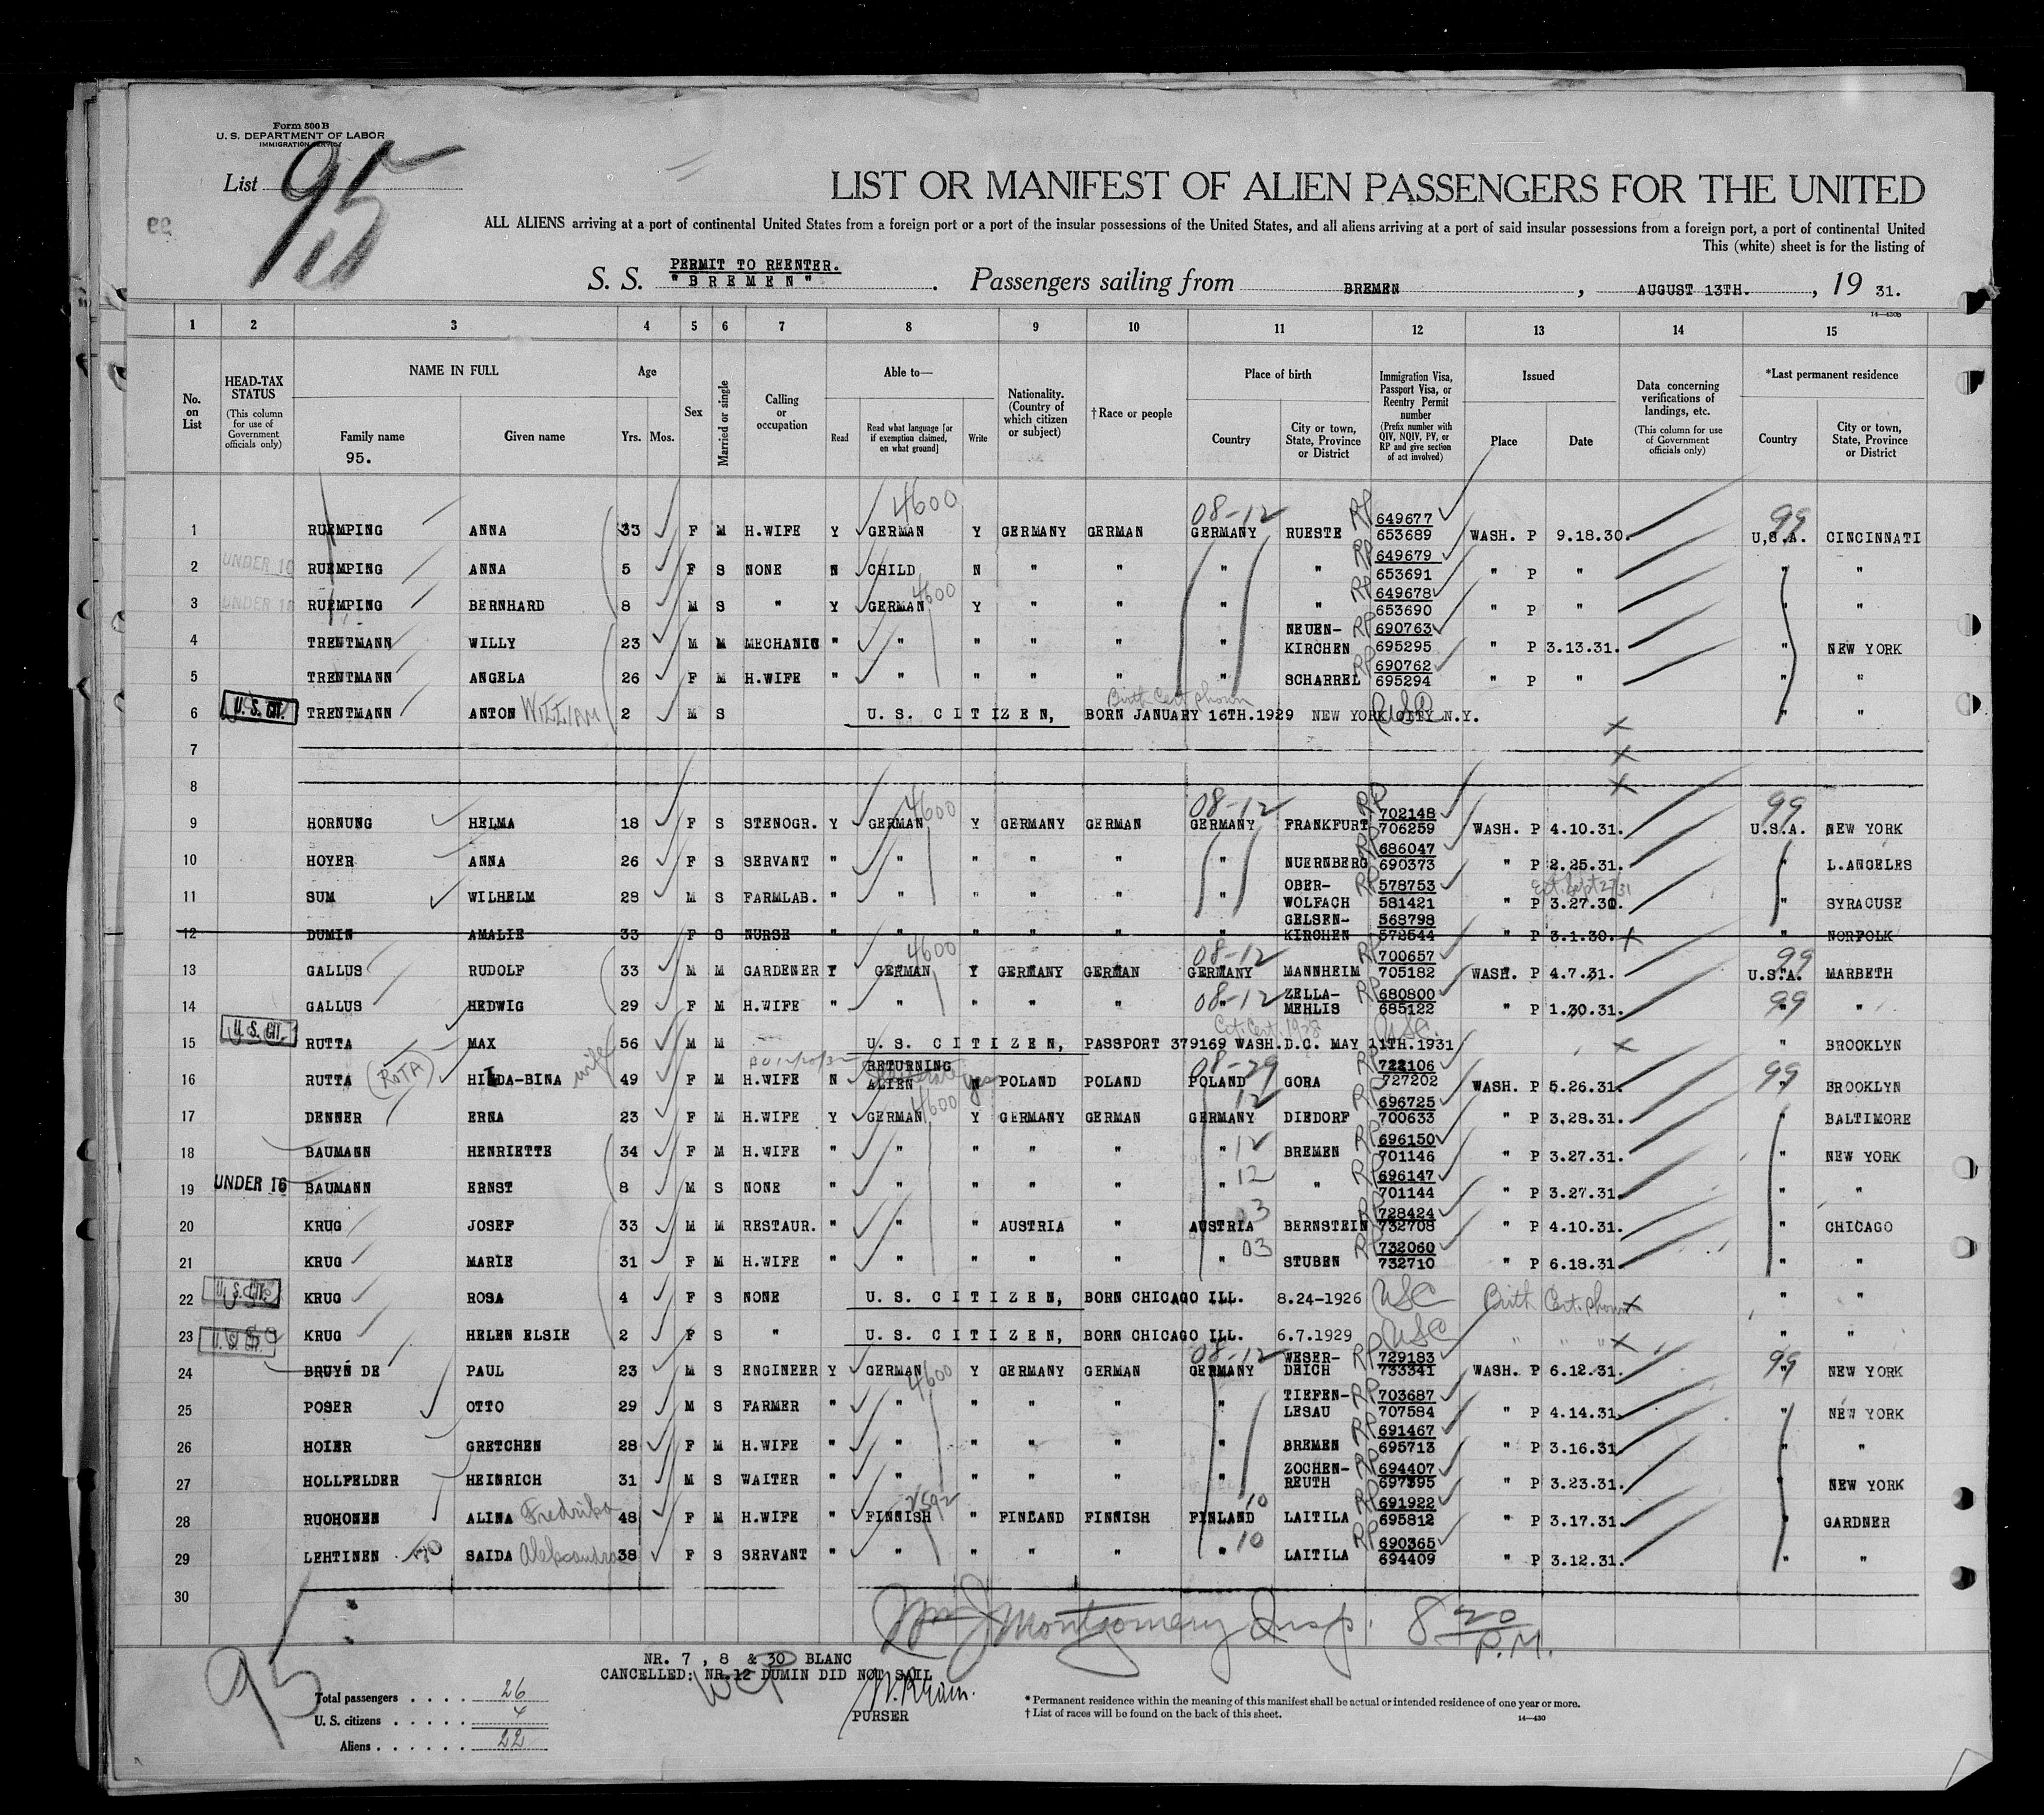 Form 500 B
U. S. DEPARTMENT OF LABOR
IMMIGRATION SERVICE
List 95
LIST OR MANIFEST OF ALIEN PASSENGERS FOR THE UNITED
ALL ALIENS arriving at a port of continental United States from a foreign port or a port of the insular possessions of the United States, and all aliens arriving at a port of said insular possessions from a foreign port, a port of continental United
This (white) sheet is for the listing of
PERMIT TO REENTER.
S. S. "BREMEN". Passengers sailing from BREMEN, AUGUST 13TH., 19 31.
14—430B
1 2 3 4 5 6 7 8 9 10 11 12 13 14 15
No. on List
HEAD-TAX STATUS (This column for use of Government officials only)
NAME IN FULL
Family name
95.
Given name
Age
Yrs. Mos.
Sex
Married or single
Calling or occupation
Able to—
Read
Read what language [or if exemption claimed, on what ground]
Write
Nationality. (Country of which citizen or subject)
† Race or people
Place of birth
Country
City or town, State, Province or District
Immigration Visa, Passport Visa, or Reentry Permit number (Prefix number with QIV, NQIV, PV, or RP and give section of act involved)
Issued
Place
Date
Data concerning verifications of landings, etc. (This column for use of Government officials only)
*Last permanent residence
Country
City or town, State, Province or District
1 RUEMPING ANNA 33 F M H.WIFE Y GERMAN 4600 Y GERMANY GERMAN 08-12 GERMANY RUESTE RP 649677 653689 WASH. P 9.18.30. 99 U.S.A. CINCINNATI
2 UNDER 16 RUEMPING ANNA 5 F S NONE N CHILD N " " " " RP 649679 653691 " P " " "
3 UNDER 16 RUEMPING BERNHARD 8 M S " Y GERMAN 4600 Y " " " " RP 649678 653690 " P " " "
4 TRENTMANN WILLY 23 M M MECHANIC " " " " " " NEUEN-KIRCHEN RP 690763 695295 " P 3.13.31. " NEW YORK
5 TRENTMANN ANGELA 26 F M H.WIFE " " " " " " SCHARREL RP 690762 695294 " P " " "
6 U.S. CIT. TRENTMANN ANTON WILLIAM 2 M S U. S. CITIZEN, Birth Cert shown BORN JANUARY 16TH.1929 NEW YORK CITY N.Y. USC X " "
7 X
8 X
9 HORNUNG HELMA 18 F S STENOGR. Y GERMAN 4600 Y GERMANY GERMAN 08-12 GERMANY FRANKFURT RP 702148 706259 WASH. P 4.10.31. 99 U.S.A. NEW YORK
10 HOYER ANNA 26 F S SERVANT " " " " " " NUERNBERG RP 686047 690373 " P 2.25.31. " L.ANGELES
11 SUM WILHELM 28 M S FARMLAB. " " " " " " OBER-WOLFACH RP 578753 581421 " P 3.27.30. Ext. Sept 27/31 " SYRACUSE
12 DUMIN AMALIE 33 F S NURSE " " " " " " GELSEN-KIRCHEN 568798 572544 " P 3.1.30. X " NORFOLK
13 GALLUS RUDOLF 33 M M GARDENER Y GERMAN 4600 Y GERMANY GERMAN 08-12 GERMANY MANNHEIM RP 700657 705182 WASH. P 4.7.31. 99 U.S.A. MARBETH
14 GALLUS HEDWIG 29 F M H.WIFE " " " " " 08-12 " ZELLA-MEHLIS RP 680800 685122 " P 1.30.31. 99 " "
15 U.S. CIT. RUTTA MAX 56 M M U. S. CITIZEN, PASSPORT 379169 WASH.D.C. MAY 11TH.1931 USC X " BROOKLYN
16 RUTTA (ROTA) HILDA-BINA wife 49 F M H.WIFE N RETURNING ALIEN N POLAND POLAND 08-29 POLAND GORA RP 722106 727202 WASH. P 5.26.31. 99 " BROOKLYN
17 DENNER ERNA 23 F M H.WIFE Y GERMAN 4600 Y GERMANY GERMAN 12 GERMANY DIEDORF RP 696725 700633 " P 3.28.31. " BALTIMORE
18 BAUMANN HENRIETTE 34 F M H.WIFE " " " " " " 12 BREMEN RP 696150 701146 " P 3.27.31. " NEW YORK
19 UNDER 16 BAUMANN ERNST 8 M S NONE " " " " " " 12 " RP 696147 701144 " P 3.27.31. " "
20 KRUG JOSEF 33 M M RESTAUR. " " " AUSTRIA " 03 AUSTRIA BERNSTEIN RP 728424 732708 " P 4.10.31. " CHICAGO
21 KRUG MARIE 31 F M H.WIFE " " " " " " 03 STUBEN RP 732060 732710 " P 6.18.31. " "
22 U.S. CIT. KRUG ROSA 4 F S NONE U. S. CITIZEN, BORN CHICAGO ILL. 8.24-1926 USC Birth Cert. shown X " "
23 U.S. CIT. KRUG HELEN ELSIE 2 F S " U. S. CITIZEN, BORN CHICAGO ILL. 6.7.1929 USC " " " X " "
24 BRUYN DE PAUL 23 M S ENGINEER Y GERMAN 4600 Y GERMANY GERMAN 08-12 GERMANY WESER-DEICH RP 729183 733341 WASH. P 6.12.31. 99 " NEW YORK
25 POSER OTTO 29 M S FARMER " " " " " " TIEFEN-LESAU RP 703687 707584 " P 4.14.31. " NEW YORK
26 HOIER GRETCHEN 28 F M H.WIFE " " " " " " BREMEN RP 691467 695713 " P 3.16.31. "
27 HOLLFELDER HEINRICH 31 M S WAITER " " " " " " ZOCHEN-REUTH RP 694407 697395 " P 3.23.31. " NEW YORK
28 RUOHONEN ALINA Fredrika 48 F M H.WIFE " FINNISH " FINLAND FINNISH FINLAND 10 LAITILA RP 691922 695812 " P 3.17.31. " GARDNER
29 LEHTINEN SAIDA Aleksandra 38 F S SERVANT " " " " " " 10 LAITILA RP 690365 694409 " P 3.12.31. " "
30
Wm J Montgomery Insp. 8 20 P.M.
95
NR. 7 , 8 & 30 BLANC
CANCELLED: NR.12 DUMIN DID NOT SAIL
PURSER
Total passengers . . . . 26
U. S. citizens . . . . . 4
Aliens . . . . . . 22
* Permanent residence within the meaning of this manifest shall be actual or intended residence of one year or more.
† List of races will be found on the back of this sheet.
14—430